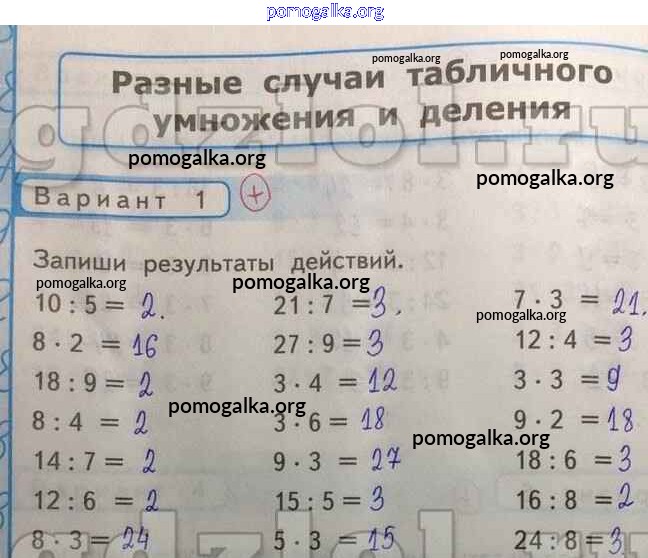 pomogalka.org
pomogalka.org pomogalka.org
Разные случаи табличного
умножения и деления
gdzlol.ru
pomogalka.org
pomogalka.org
Вариант 1 +
Запиши результаты действий.
pomogalka.org pomogalka.org
10 : 5 = 2. 21 : 7 = 3. 7 · 3 = 21.
pomogalka.org
8 · 2 = 16 27 : 9 = 3 12 : 4 = 3
18 : 9 = 2 3 · 4 = 12 3 · 3 = 9
pomogalka.org
8 : 4 = 2 3 · 6 = 18 9 · 2 = 18
pomogalka.org
14 : 7 = 2 9 · 3 = 27 18 : 6 = 3
12 : 6 = 2 15 : 5 = 3 16 : 8 = 2
8 · 3 = 24 5 · 3 = 15 24 : 8 = 3
gdzlol.ru